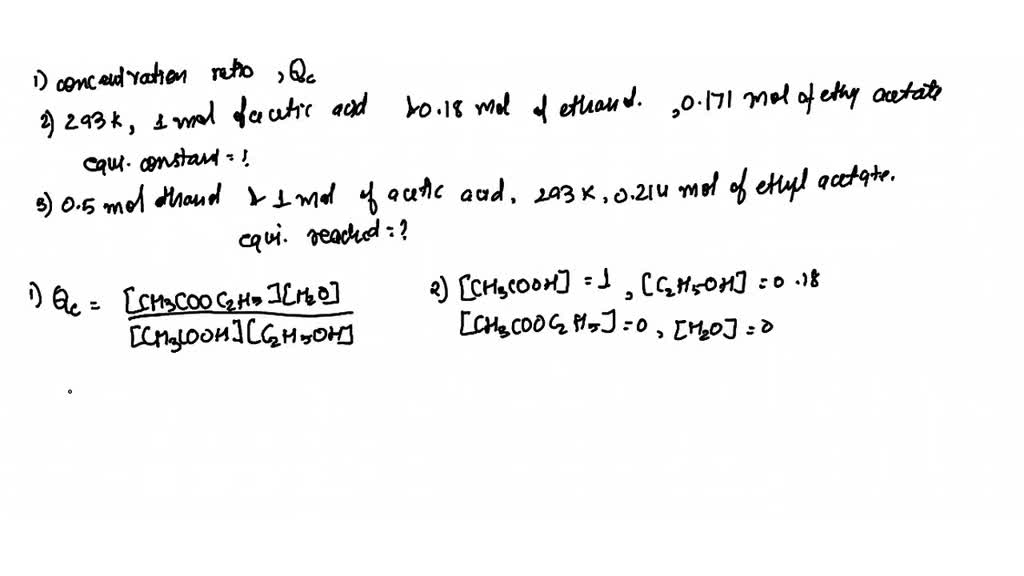 1) concentration ratio , Qc
2) 293 K, 1 mol of acetic acid & 0.18 mol of ethanol. , 0.171 mol of ethy acetate
equi. constant = ?
3) 0.5 mol ethanol & 1 mol of acetic acid, 293 K, 0.214 mol of ethyl acetate.
equi. reached = ?
1) Qc = [CH3COOC2H5][H2O] / [CH3COOH][C2H5OH]
2) [CH3COOH] = 1 , [C2H5OH] = 0.18
[CH3COOC2H5] = 0 , [H2O] = 0